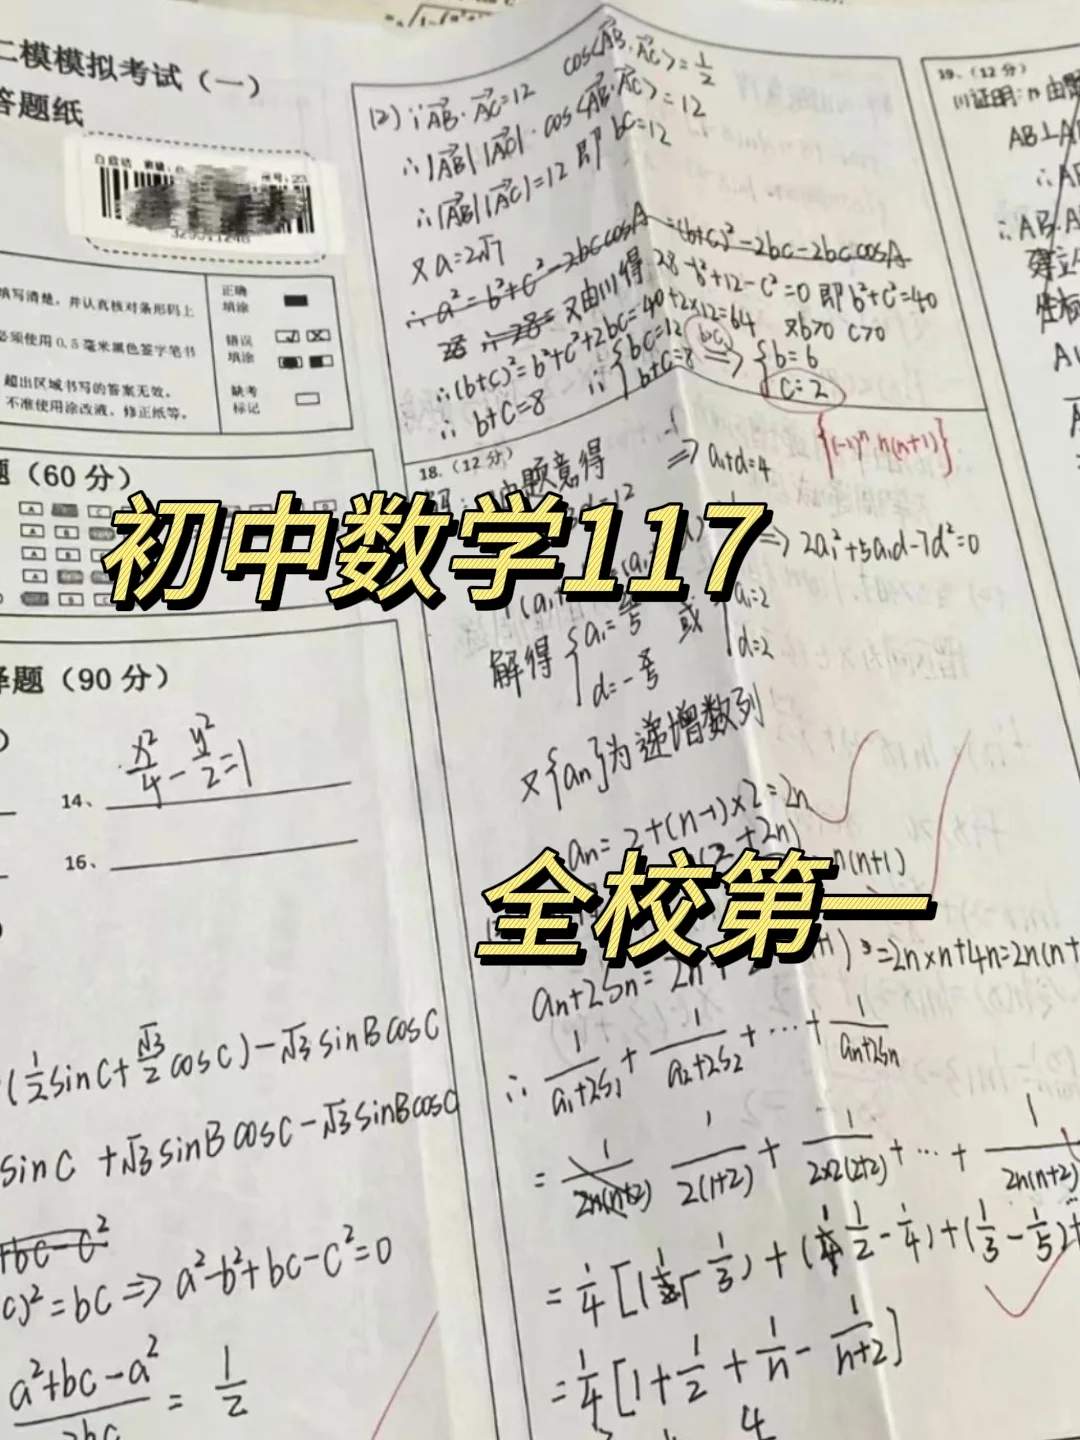 二模模拟考试（一）
答题纸
填写清楚，并认真核对条形码上
必须使用0.5毫米黑色签字笔书
超出区域书写的答案无效。
不准使用涂改液、修正纸等。
正确
填涂
错误
填涂
缺考
标记
题（60分）
择题（90分）
14、x²/4 - y²/2 = 1
16、
(1/2 sinC + √3/2 cosC) - √3 sinB cosC
sinC + √3 sinB cosC - √3 sinB cosC
+bc-c²
c)² = bc ⇒ a²-b²+bc-c²=0
a²+bc-a²/2bc = 1/2
cos<AB·AC>=1/2
(2) ∵AB·AC=12
∴|AB||AC|·cos<AB·AC>=12
∴|AB||AC|=12 即 bc=12
又a=2√7
∴a²=b²+c²-2bccosA=(b+c)²-2bc-2bccosA
又由(1)得 28-b²+12-c²=0 即b²+c²=40
∴(b+c)²=b²+c²+2bc=40+2×12=64 又b>0 c>0
∴b+c=8 ∴{bc=12 b+c=8 ⇒ {b=6 c=2
18.（12分）
{(-1)ⁿ n(n+1)}
由题意得
⇒ a₁+d=4
⇒ 2a₁²+5a₁d-7d²=0
初中数学117
解得
或 {a₁=2 d=2
又{an}为递增数列
an=2+(n-1)×2=2n
n(n+1)
全校第一
an+2Sn=2n+
=2n×n+4n=2n(n+
∴ 1/a₁+2S₁ + 1/a₂+2S₂ + ⋯ + 1/an+2Sn
= 1/2n(n+2) 1/2(1+2) + 1/2×2(2+2) + ⋯ + 1/2n(n+2)
=1/4[(1-1/3)+(1/2-1/4)+(1/3-1/5)+
=1/4[1+1/2+1/n-1/n+2]
19、（12分）
(1)证明：
由题
AB⊥A
∴A
∴AB·A
建立
坐标
A